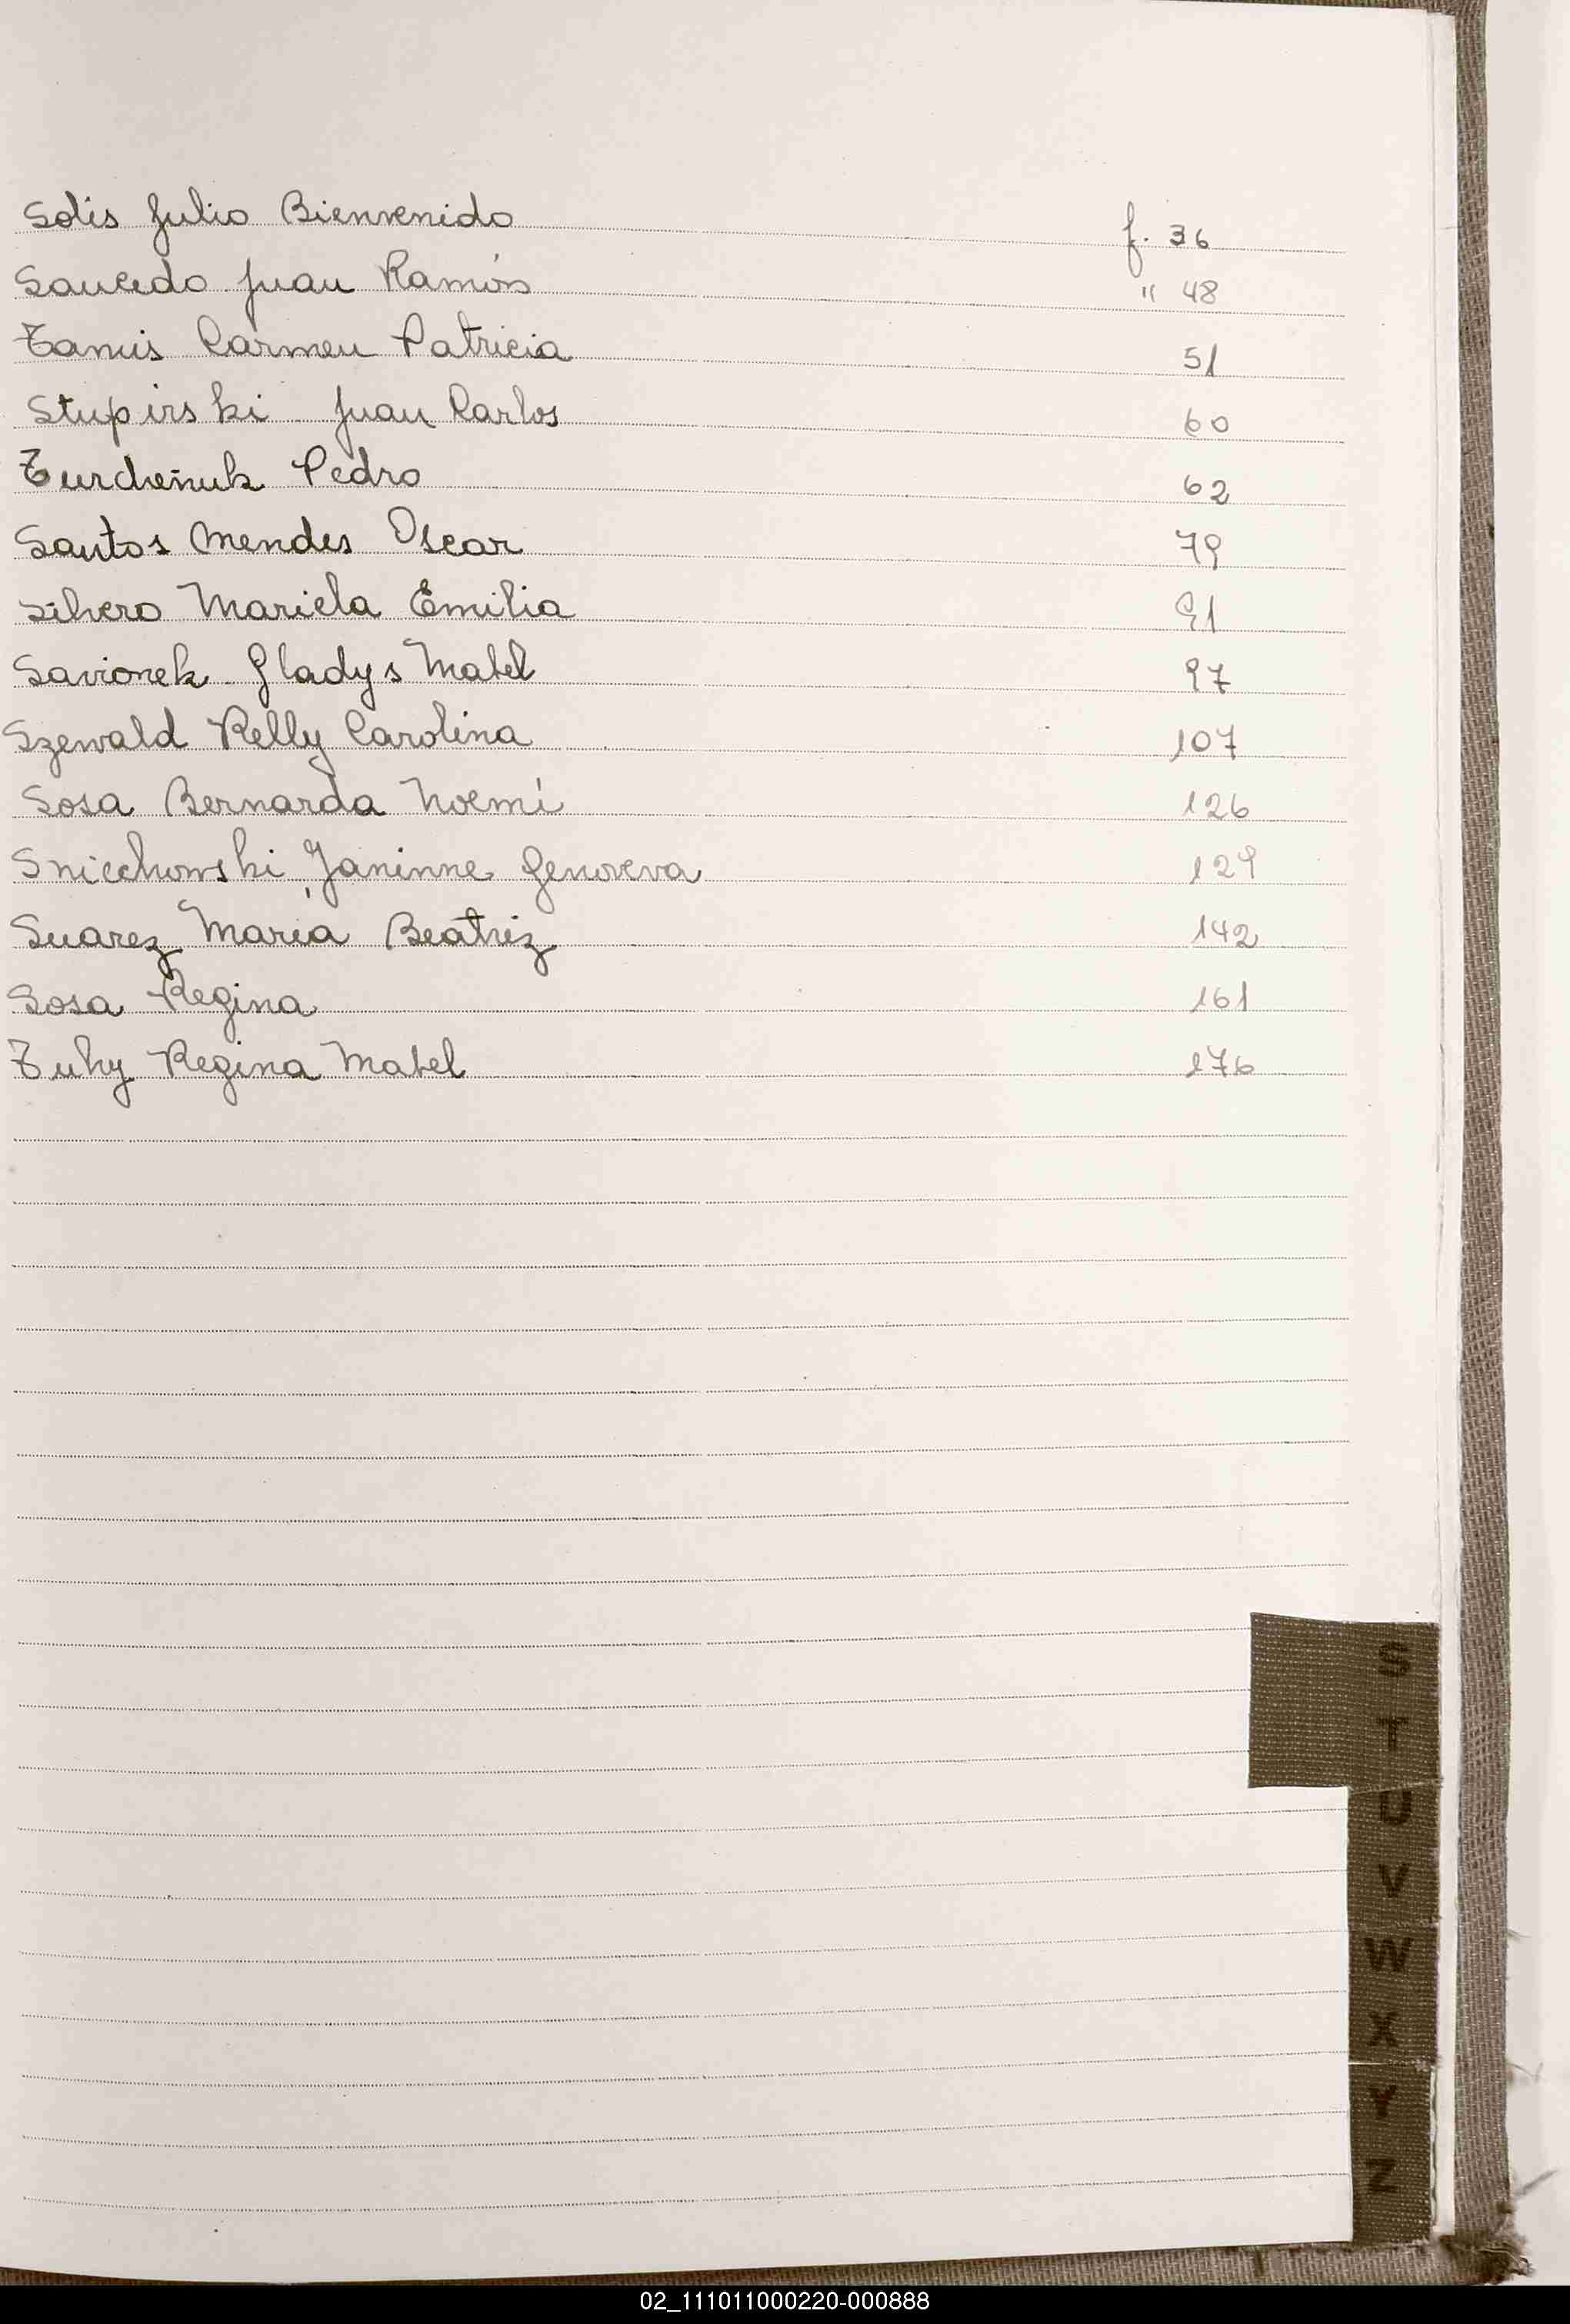 Solis Julio Bienvenido f. 36
Saucedo Juan Ramón " 48
Tamis Carmen Patricia 51
Stupirski Juan Carlos 60
Turcheñuk Pedro 62
Santos Mendes Oscar 79
Silvero Mariela Emilia 91
Savionek Gladys Mabel 97
Szewald Relly Carolina 107
Sosa Bernarda Noemí 126
Sniechowski Janinne Genoveva 129
Suarez María Beatriz 142
Sosa Regina 161
Tuhy Regina Mabel 176
S
T
U
V
W
X
Y
Z
02_111011000220-000888